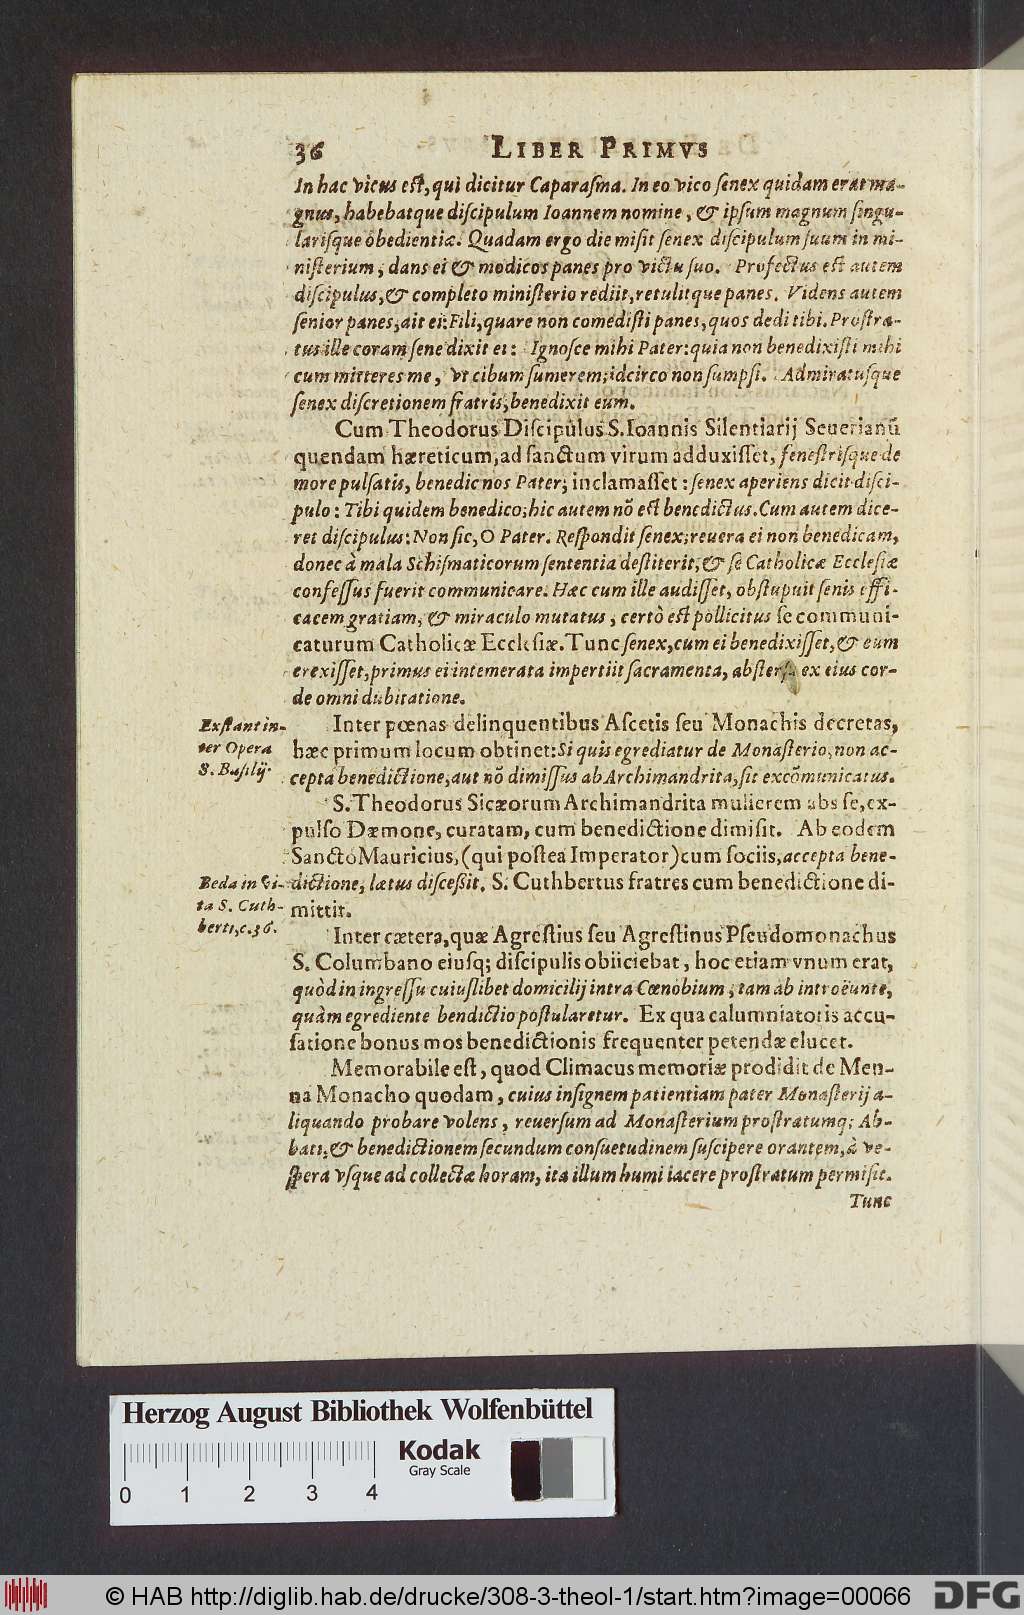 36 LIBER PRIMVS
In hac vicus est, qui dicitur Caparasma. In eo vico senex quidam erat ma-
gnus, habebatque discipulum Ioannem nomine, & ipsum magnum singu-
larisque obedientiæ. Quadam ergo die misit senex discipulum suum in mi-
nisterium, dans ei & modicos panes pro victu suo. Profectus est autem
discipulus, & completo ministerio rediit, retulitque panes. Videns autem
senior panes, ait ei: Fili, quare non comedisti panes, quos dedi tibi. Prostra-
tus ille coram sene dixit ei: Ignosce mihi Pater: quia non benedixisti mihi
cum mitteres me, vt cibum sumerem; idcirco non sumpsi. Admiratusque
senex discretionem fratris, benedixit eum.
Cum Theodorus Discipulus S. Ioannis Silentiarij Seuerianũ
quendam hæreticum, ad sanctum virum adduxisset, fenestrisque de
more pulsatis, benedic nos Pater, inclamasset: senex aperiens dicit disci-
pulo: Tibi quidem benedico; hic autem nõ est benedictus. Cum autem dice-
ret discipulus: Non sic, O Pater. Respondit senex; reuera ei non benedicam,
donec à mala Schismaticorum sententia destiterit, & se Catholicæ Ecclesiæ
confessus fuerit communicare. Hæc cum ille audisset, obstupuit senis effi-
cacem gratiam, & miraculo mutatus, certò est pollicitus se communi-
caturum Catholicæ Ecclesiæ. Tunc senex, cum ei benedixisset, & eum
erexisset, primus ei intemerata impertiit sacramenta, abstersa ex eius cor-
de omni dubitatione.
Exstant in-
ter Opera
S. Basilij.
Inter pœnas delinquentibus Ascetis seu Monachis decretas,
hæc primum locum obtinet: Si quis egrediatur de Monasterio, non ac-
cepta benedictione, aut nõ dimissus ab Archimandrita, sit excõmunicatus.
S. Theodorus Sicæorum Archimandrita mulierem abs se, ex-
pulso Dæmone, curatam, cum benedictione dimisit. Ab eodem
Sancto Mauricius, (qui postea Imperator) cum sociis, accepta bene-
dictione, lætus discessit. S. Cuthbertus fratres cum benedictione di-
mittit.
Beda in vi-
ta S. Cuth-
berti, c. 36.
Inter cætera, quæ Agrestius seu Agrestinus Pseudomonachus
S. Columbano eiusq; discipulis obiiciebat, hoc etiam vnum erat,
quòd in ingressu cuiuslibet domicilij intra Cœnobium, tam ab introëunte,
quàm egrediente bendictio postularetur. Ex qua calumniatoris accu-
satione bonus mos benedictionis frequenter petendæ elucet.
Memorabile est, quod Climacus memoriæ prodidit de Men-
na Monacho quodam, cuius insignem patientiam pater Monasterij a-
liquando probare volens, reuersum ad Monasterium prostratumq; Ab-
bati, & benedictionem secundum consuetudinem suscipere orantem, à ve-
spera vsque ad collectæ horam, ita illum humi iacere prostratum permisit.
Tunc
Herzog August Bibliothek Wolfenbüttel
Kodak
Gray Scale
0 1 2 3 4
© HAB http://diglib.hab.de/drucke/308-3-theol-1/start.htm?image=00066
DFG